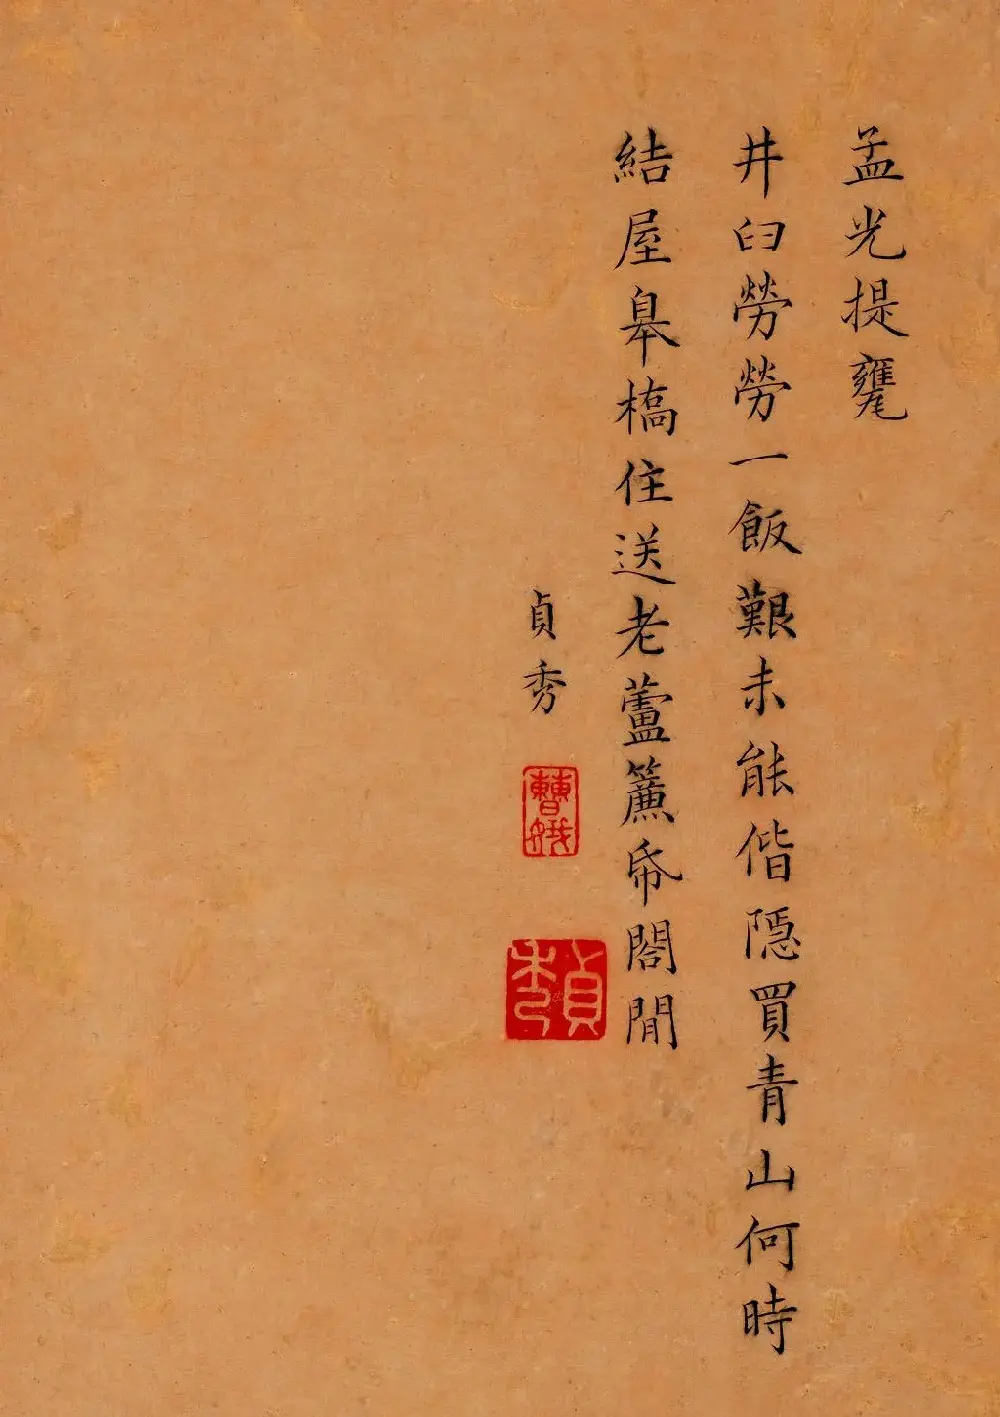 孟光提甕
井臼勞勞一飯艱未能偕隱買青山何時
結屋皋橋住送老蘆簾帋閣閒
貞秀
曹娥
貞秀